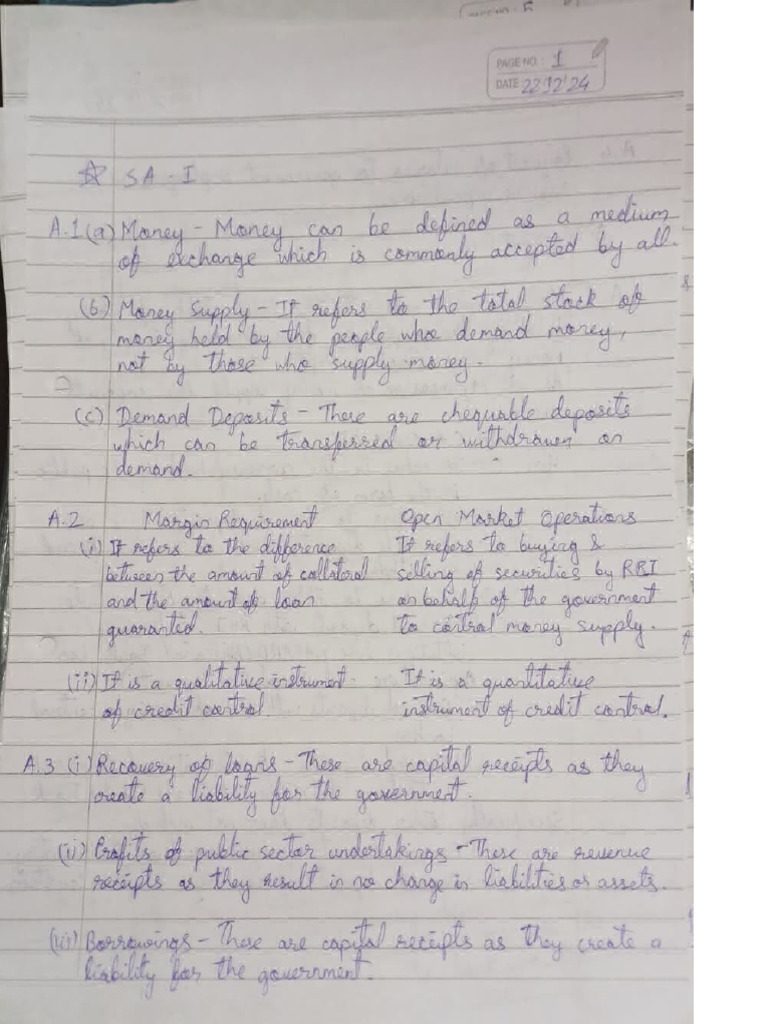 PAGE NO.: 1
DATE: 22/12/24
☆ SA - I
A.1 (a) Money - Money can be defined as a medium
of exchange which is commonly accepted by all.
(b) Money Supply - It refers to the total stock of
money held by the people who demand money,
not by those who supply money.
(c) Demand Deposits - These are chequable deposits
which can be transferred or withdrawn on
demand.
A.2 Margin Requirement Open Market Operations
(i) It refers to the difference It refers to buying &
between the amount of collateral selling of securities by RBI
and the amount of loan on behalf of the government
guaranted. to control money supply.
(ii) It is a qualitative instrument It is a quantitative
of credit control. instrument of credit control.
A.3 (i) Recovery of loans - These are capital receipts as they
create a liability for the government.
(ii) Profits of public sector undertakings - These are revenue
receipts as they result in no change in liabilities or assets.
(iii) Borrowings - These are capital receipts as they create a
liability for the government.